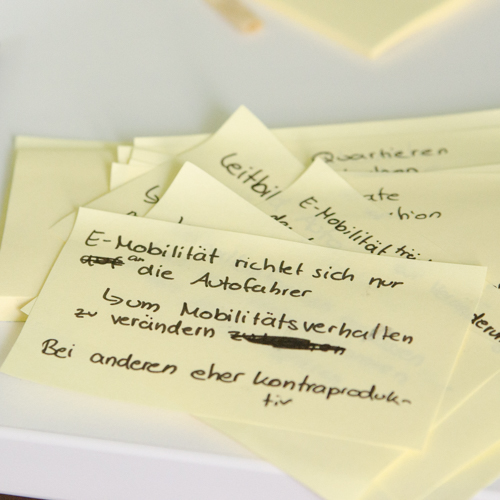 Quartieren
Leitbil
E-Mobilität
E-Mobilität richtet sich nur
an die Autofahrer
↳ um Mobilitätsverhalten
zu verändern
Bei anderen eher kontraproduk-
tiv